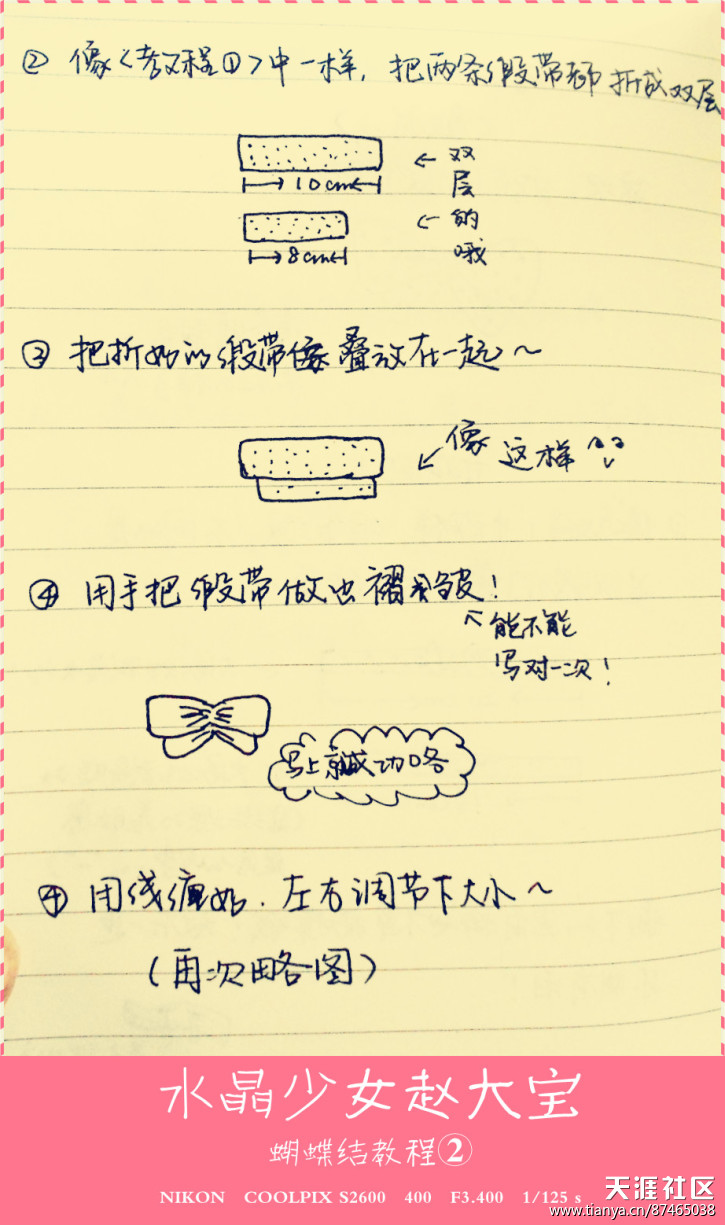 ② 像<教程①>中一样，把两条缎带都折成双层
←双
层
10cm
←的
哦
8cm
③ 把折好的缎带像叠放在一起~
←像 这样
④ 用手把缎带做出褶皱！
^能不能
写对一次！
马上就成功咯
④ 用线缠好．左右调节下大小~
（再次略图）
水晶少女赵大宝
蝴蝶结教程②
NIKON COOLPIX S2600 400 F3.400 1/125 s
天涯社区
www.tianya.cn/87465038